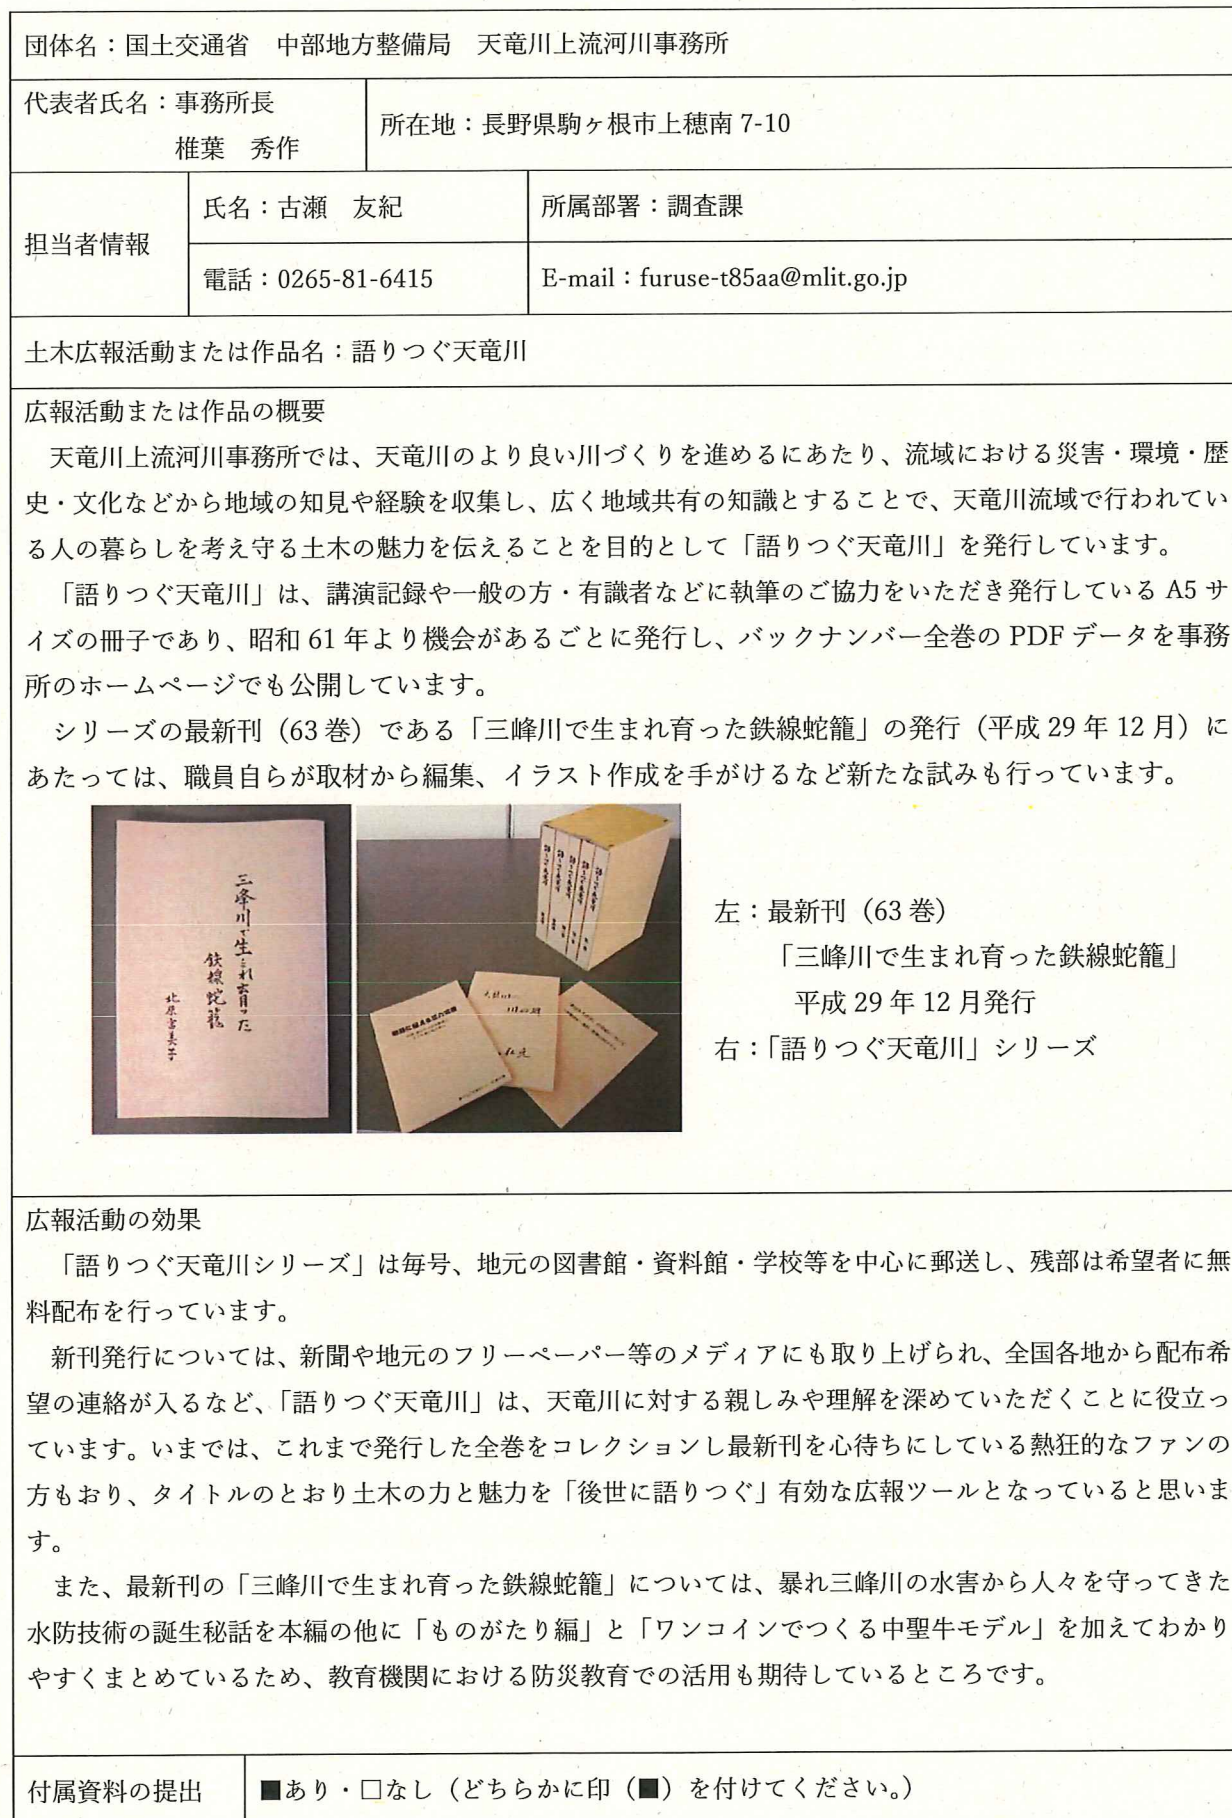 団体名：国土交通省　中部地方整備局　天竜川上流河川事務所
代表者氏名：事務所長
椎葉　秀作
所在地：長野県駒ヶ根市上穂南 7-10
担当者情報
氏名：古瀬　友紀
所属部署：調査課
電話：0265-81-6415
E-mail：furuse-t85aa@mlit.go.jp
土木広報活動または作品名：語りつぐ天竜川
広報活動または作品の概要
　天竜川上流河川事務所では、天竜川のより良い川づくりを進めるにあたり、流域における災害・環境・歴
史・文化などから地域の知見や経験を収集し、広く地域共有の知識とすることで、天竜川流域で行われてい
る人の暮らしを考え守る土木の魅力を伝えることを目的として「語りつぐ天竜川」を発行しています。
　「語りつぐ天竜川」は、講演記録や一般の方・有識者などに執筆のご協力をいただき発行している A5 サ
イズの冊子であり、昭和 61 年より機会があるごとに発行し、バックナンバー全巻の PDF データを事務
所のホームページでも公開しています。
　シリーズの最新刊（63 巻）である「三峰川で生まれ育った鉄線蛇籠」の発行（平成 29 年 12 月）に
あたっては、職員自らが取材から編集、イラスト作成を手がけるなど新たな試みも行っています。
三峰川で生まれ育った
鉄線蛇籠
左：最新刊（63 巻）
「三峰川で生まれ育った鉄線蛇籠」
平成 29 年 12 月発行
右：「語りつぐ天竜川」シリーズ
広報活動の効果
　「語りつぐ天竜川シリーズ」は毎号、地元の図書館・資料館・学校等を中心に郵送し、残部は希望者に無
料配布を行っています。
　新刊発行については、新聞や地元のフリーペーパー等のメディアにも取り上げられ、全国各地から配布希
望の連絡が入るなど、「語りつぐ天竜川」は、天竜川に対する親しみや理解を深めていただくことに役立っ
ています。いまでは、これまで発行した全巻をコレクションし最新刊を心待ちにしている熱狂的なファンの
方もおり、タイトルのとおり土木の力と魅力を「後世に語りつぐ」有効な広報ツールとなっていると思いま
す。
　また、最新刊の「三峰川で生まれ育った鉄線蛇籠」については、暴れ三峰川の水害から人々を守ってきた
水防技術の誕生秘話を本編の他に「ものがたり編」と「ワンコインでつくる中聖牛モデル」を加えてわかり
やすくまとめているため、教育機関における防災教育での活用も期待しているところです。
付属資料の提出
■あり・□なし（どちらかに印（■）を付けてください。）